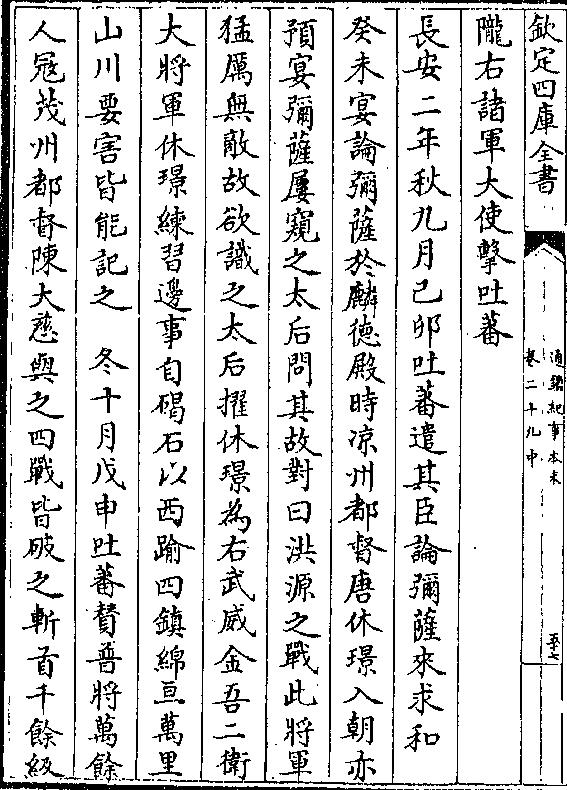 欽定四庫全書
通鑑紀事本末
卷二十九中
隴右諸軍大使擊吐蕃
長安二年秋九月己卯吐蕃遣其臣論彌薩來求和
癸未宴論彌薩於麟德殿時凉州都督唐休璟入朝亦
預宴彌薩屢窺之太后問其故對曰洪源之戰此將軍
猛厲無敵故欲識之太后擢休璟為右武威金吾二衛
大將軍休璟練習邊事自碣石以西踰四鎮綿亘萬里
山川要害皆能記之 冬十月戊申吐蕃賛普將萬餘
人冦茂州都督陳大慈與之四戰皆破之斬首千餘級